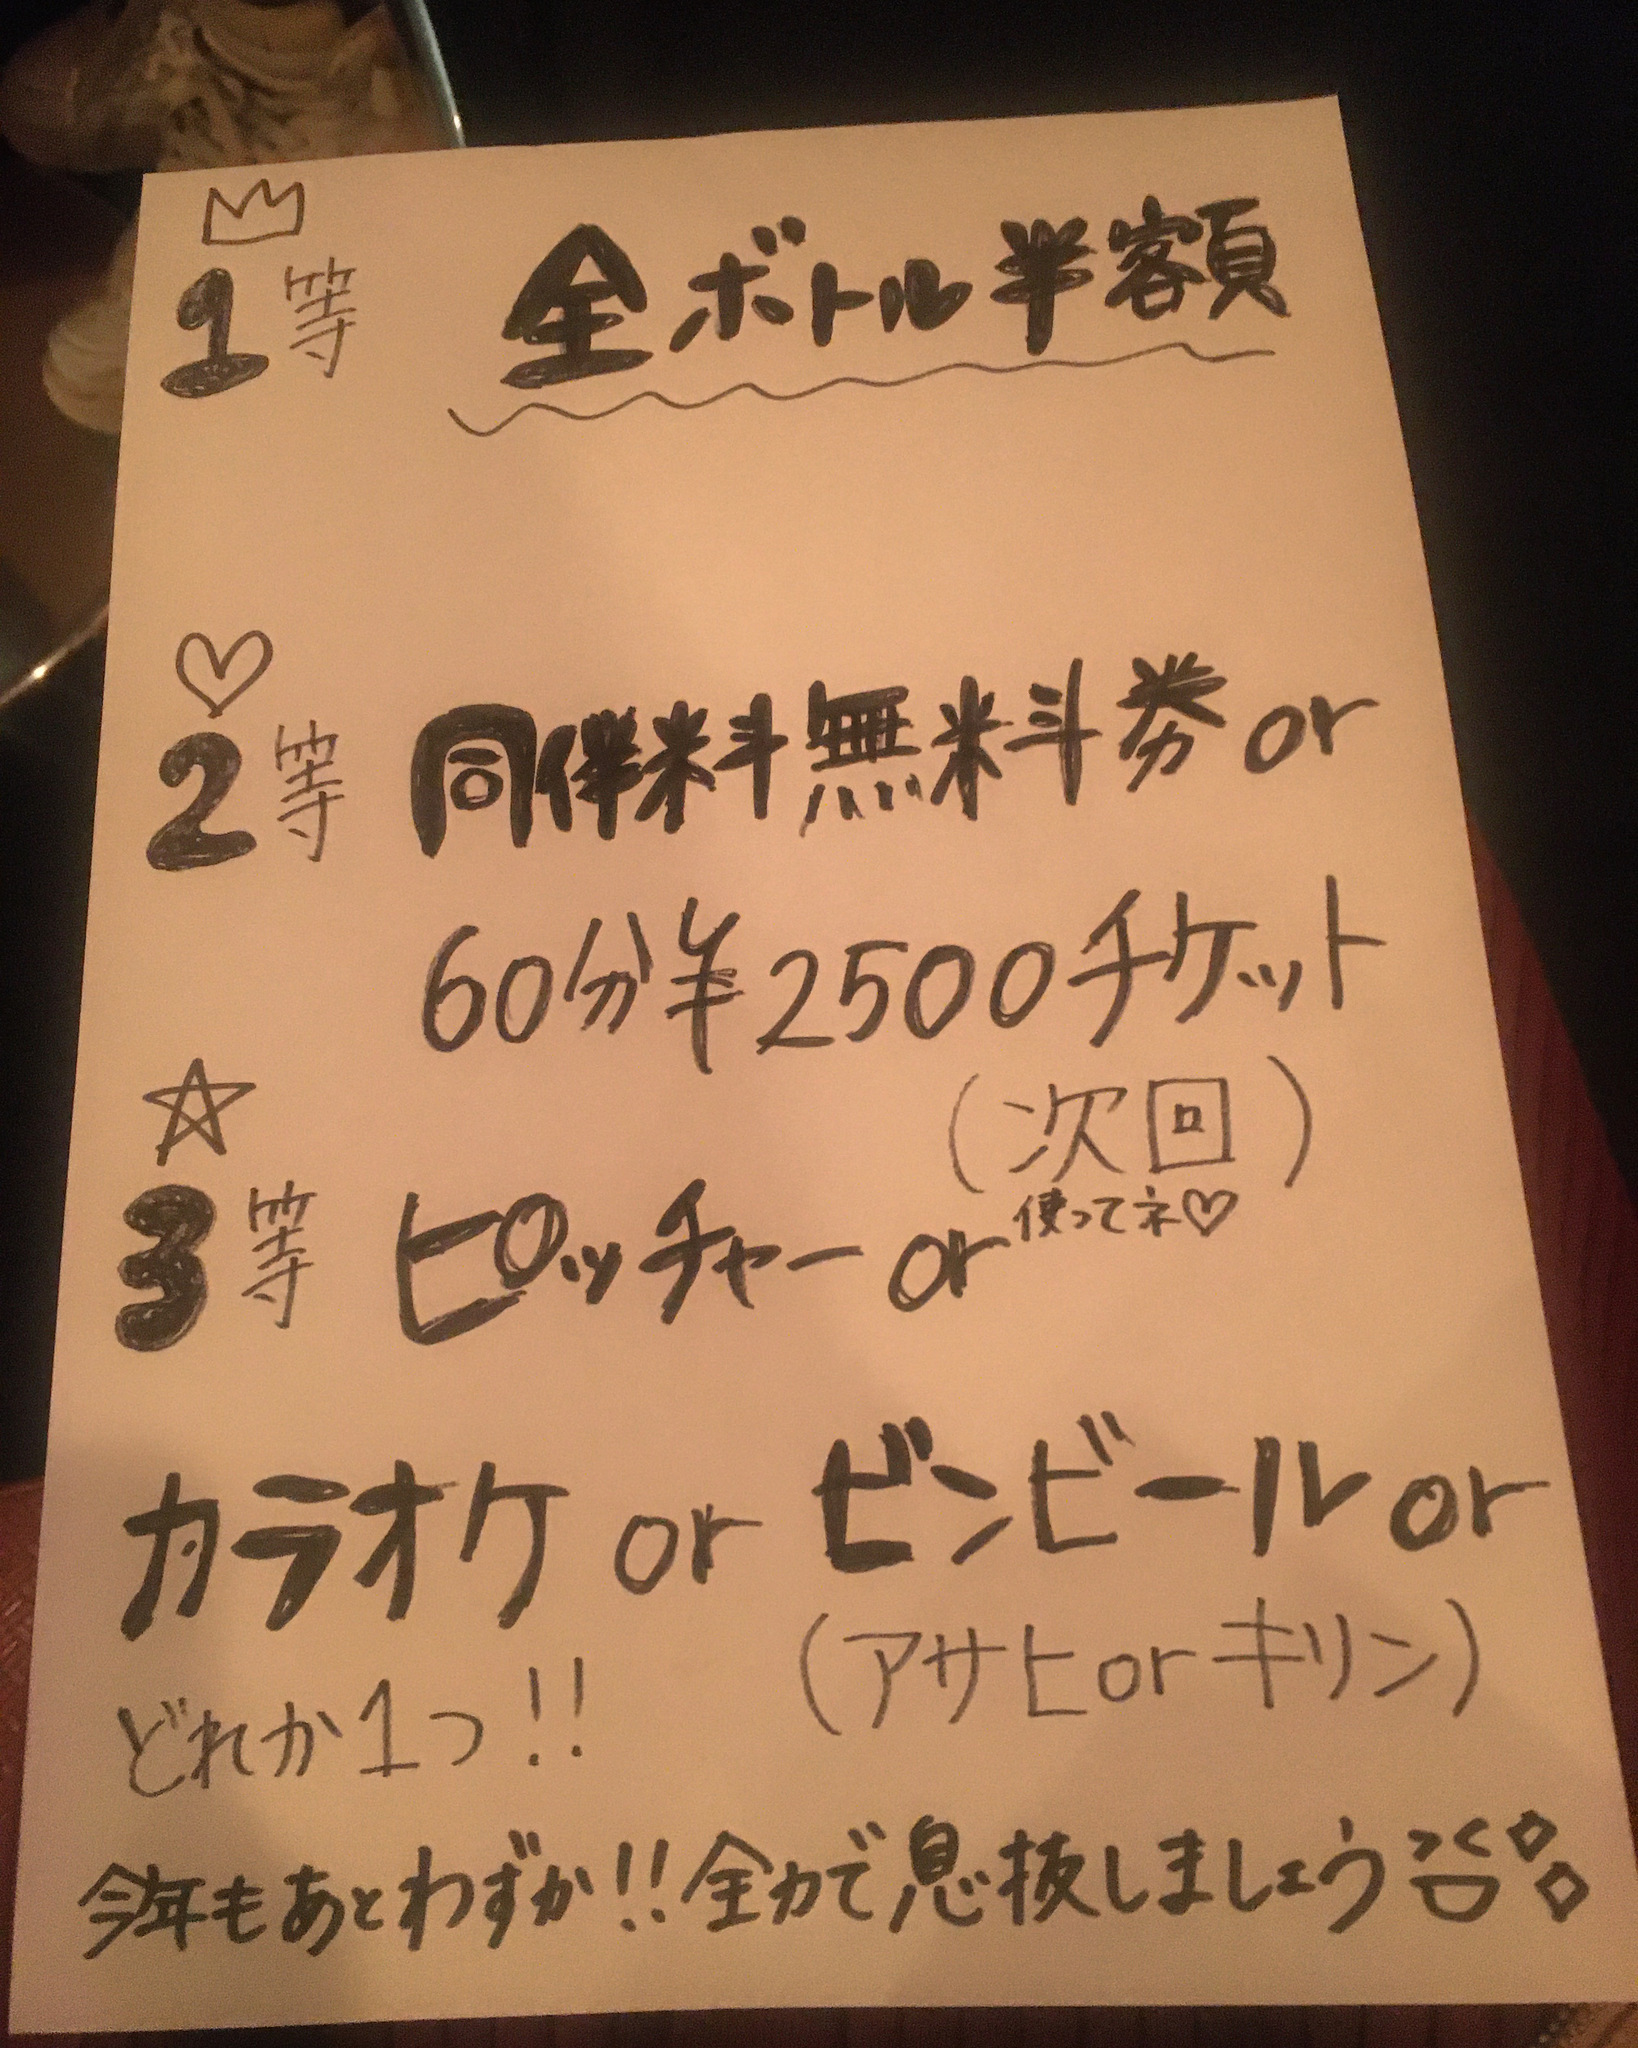 1等 全ボトル半額
2等 同伴料無料券or
60分¥2500チケット
(次回)
使ってネ♡
3等 ピッチャーor
カラオケor ビンビールor
(アサヒorキリン)
どれか1つ!!
今年もあとわずか!!全力で息抜しましょう